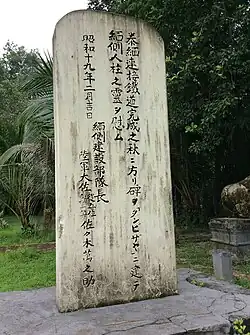 泰緬連接鐵道完成之秋ニ方リ碑ヲタンビザヤニ建テ
緬側人柱之霊ヲ慰ム
昭和十九年二月吉日
緬側建設部隊長
陸軍大佐佐々木之助